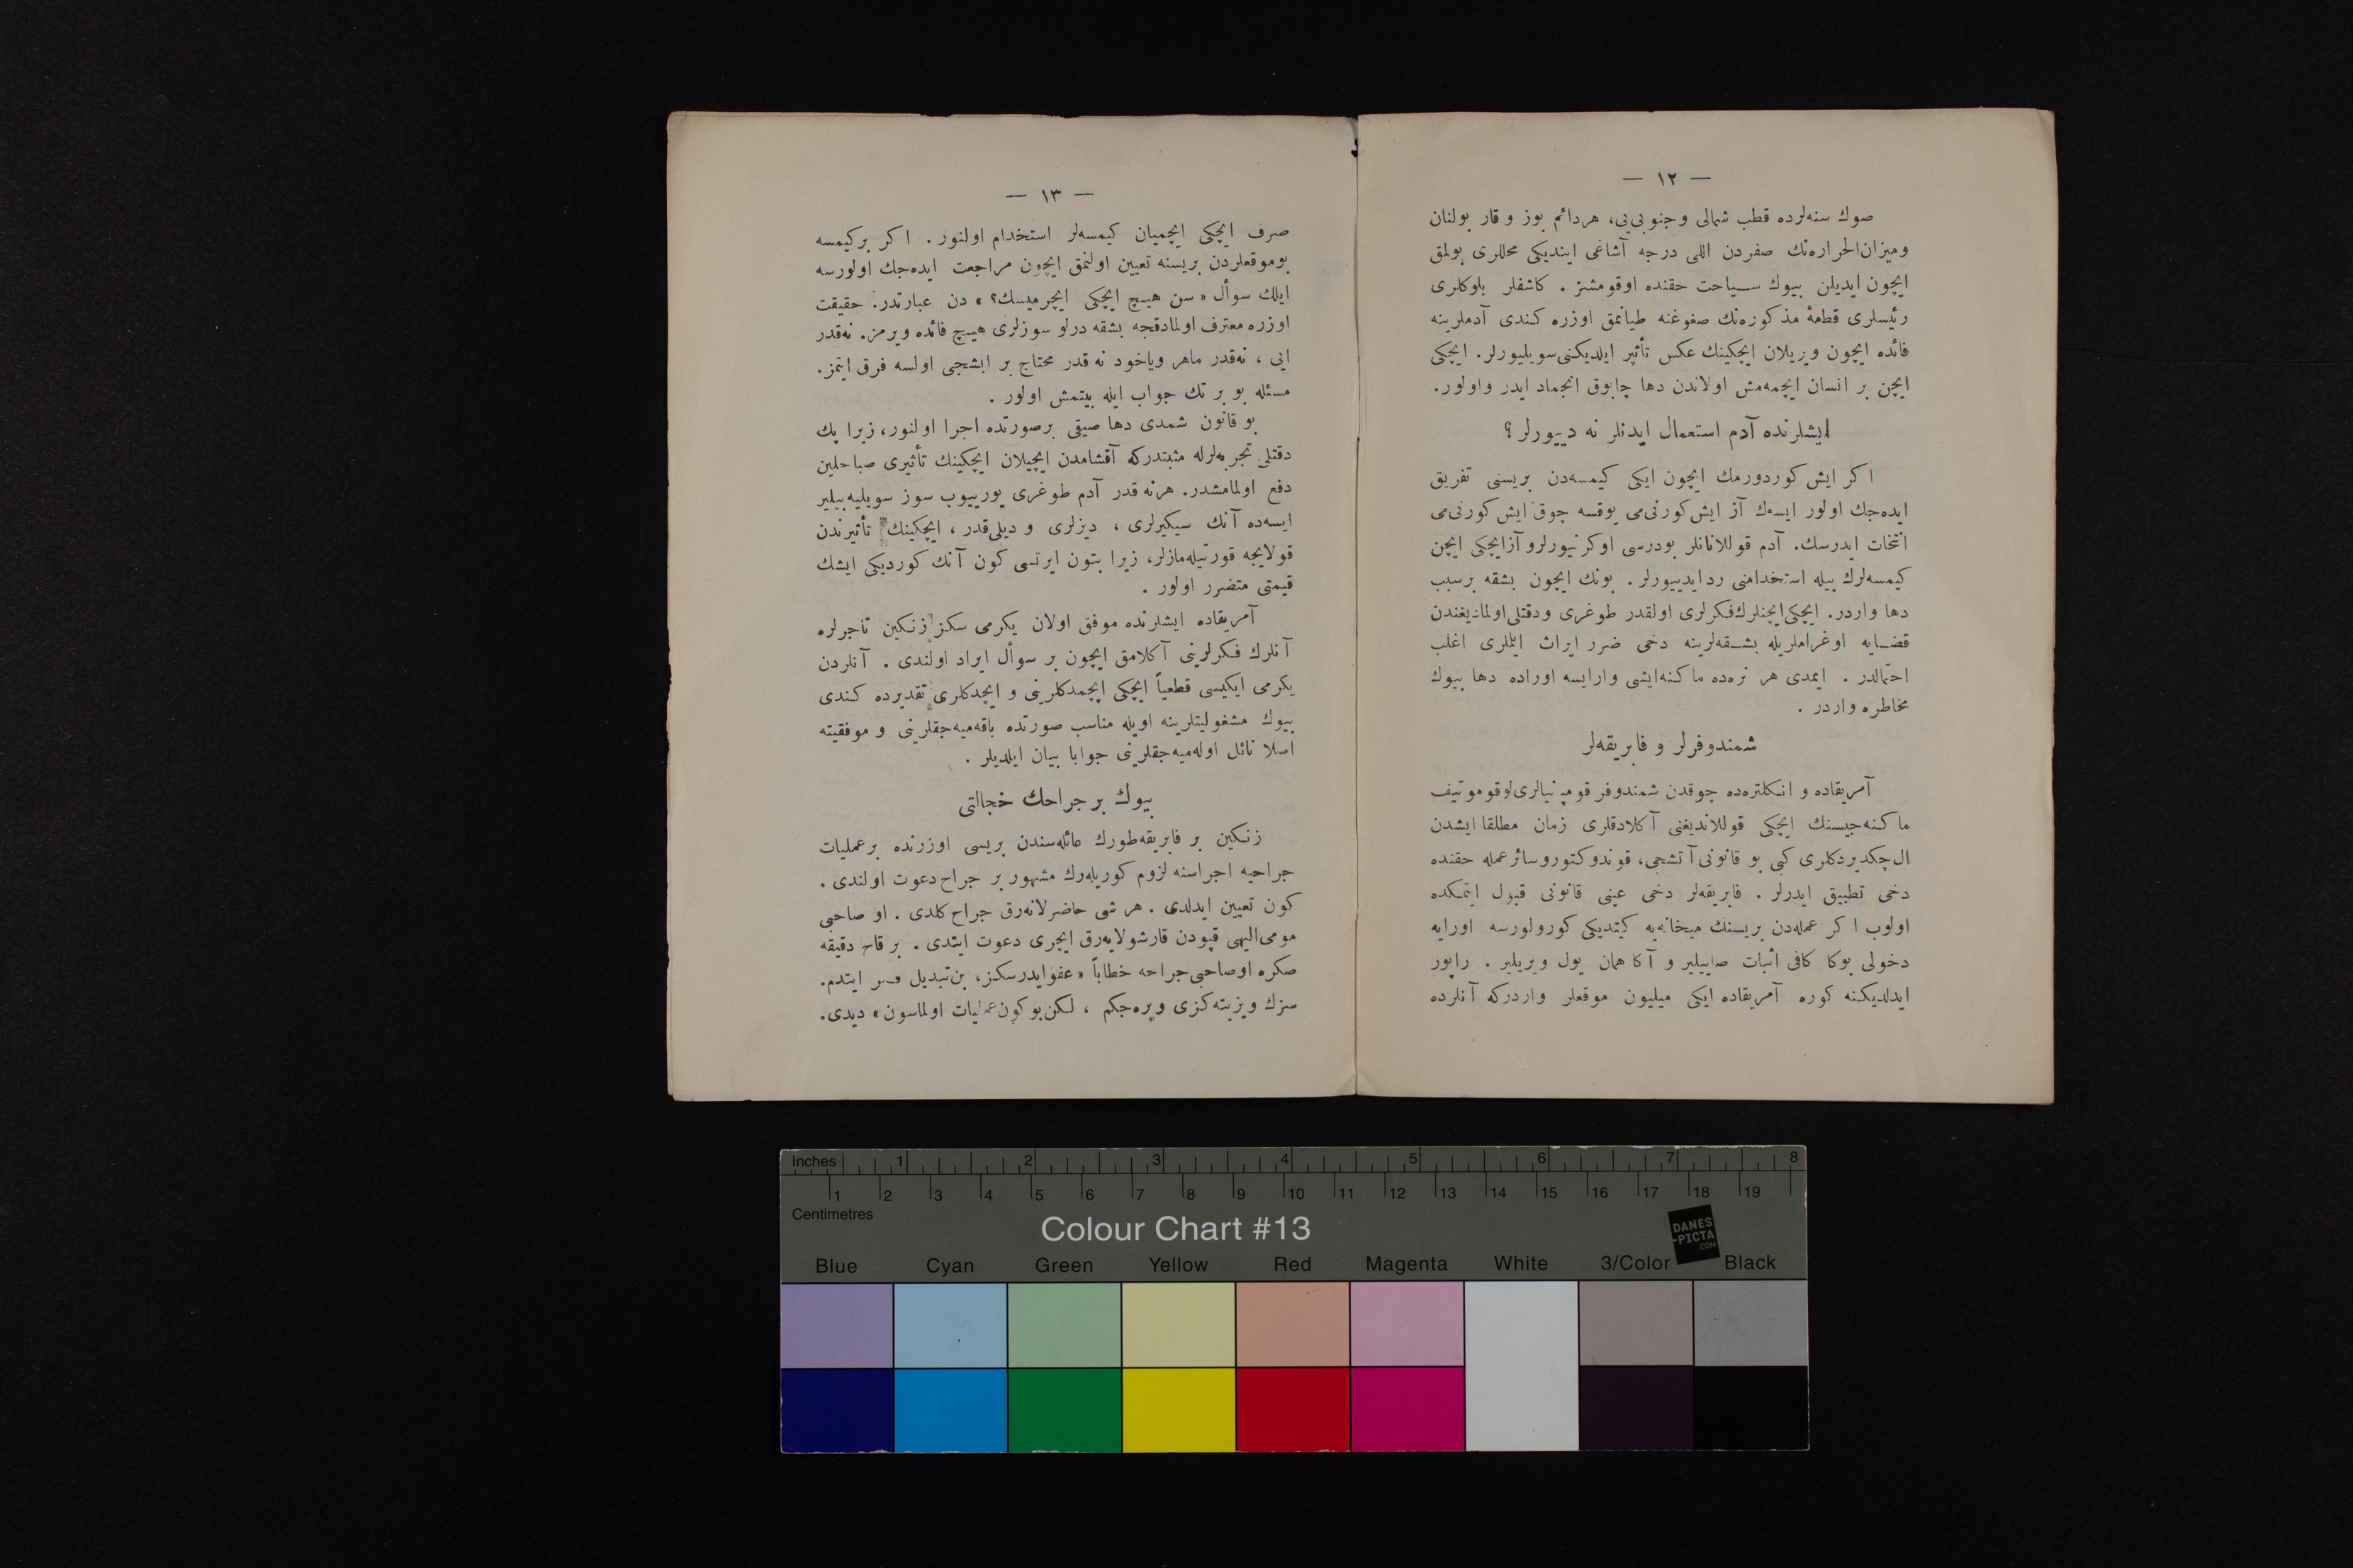 — ١٢ —
صوك سنه‌لرده قطب شمالی وجنوبی‌یی، هردائم بوز و قار بولنان
ومیزان‌الحراره‌نك صفردن اللی درجه آشاغی ایندیكی محللری بولمق
ایچون ایدیلن بیوك سیاحت حقنده اوقومشز . كاشفلر بلوكلری
رئیسلری قطعهٔ مذكوره‌نك صغوغنه طیانمق اوزره كندی آدملرینه
فائده ایچون ویریلان ایچكینك عكس تأثیر ایلدیكنی سویلیورلر. ایچكی
ایچن بر انسان ایچمه‌مش اولاندن دها چابوق انجماد ایدر واولور.
ایشلرنده آدم استعمال ایدنلر نه دییورلر ؟
اكر ایش كوردورمك ایچون ایكی كیمسه‌دن بریسنی تفریق
ایده‌جك اولور ایسه‌ك آز ایش كورنی‌می یوقسه چوق ایش كورنی‌می
انتخاب ایدرسك. آدم قوللانانلر بودرسی اوكرنیورلرو آزایچكی ایچن
كیمسه‌لرك بیله استخدامنی ردایدییورلر. بونك ایچون بشقه برسبب
دها واردر. ایچكی‌ایچنلرك‌فكرلری اولقدر طوغری ودقتلی‌اولمادیغندن
قضایه اوغراملریله بشقه‌لرینه دخی ضرر ایراث ایتملری اغلب
احتمالدر . ایمدی هر نره‌ده ماكنه‌ایشی وارایسه اوراده دها بیوك
مخاطره واردر .
شمندوفرلر و فابریقه‌لر
آمریقاده و انكلتره‌ده چوقدن شمندوفر قومپنیالری‌لوقوموتیف
ماكنه‌جیسنك ایچكی قوللاندیغنی آكلادقلری زمان مطلقا ایشدن
ال‌چكدیردكلری كبی بو قانونی آتشجی، قوندوكتوروسائرعمله حقنده
دخی تطبیق ایدرلر . فابریقه‌لر دخی عینی قانونی قبول ایتمكده
اولوب اكر عمله‌دن بریسنك میخانه‌یه كیتدیكی كورولورسه اورایه
دخولی بوكا كافی اثبات صاییلیر و آكا همان یول ویریلیر . راپور
ایدلدیكنه كوره آمریقاده ایكی میلیون موقعلر واردركه آنلرده
— ١٣ —
صرف ایچكی ایچمیان كیمسه‌لر استخدام اولنور . اكر بركیمسه
بوموقعلردن بریسنه تعیین اولنمق ایچون مراجعت ایده‌جك اولورسه
ایلك سوأل « سن هیچ ایچكی ایچرمیسك؟ » دن عبارتدر. حقیقت
اوزره معترف اولمادقجه بشقه درلو سوزلری هیچ فائده ویرمز. نه‌قدر
ایی ، نه‌قدر ماهر ویاخود نه قدر محتاج بر ایشجی اولسه فرق ایتمز.
مسئله بو بر تك جواب ایله بیتمش اولور .
بو قانون شمدی دها صیقی برصورتده اجرا اولنور، زیرا پك
دقتلی تجربه‌لرله مثبتدركه آقشامدن ایچیلان ایچكینك تأثیری صباحلین
دفع اولمامشدر. هرنه قدر آدم طوغری یورییوب سوز سویلیه‌بیلیر
ایسه‌ده آنك سیكیرلری ، دیزلری و دیلی‌قدر ، ایچكینك تأثیرندن
قولایجه قورتیله‌مازلر، زیرا بتون ایرتسی كون آنك كوردیكی ایشك
قیمتی متضرر اولور .
آمریقاده ایشلرنده موفق اولان یكرمی سكز زنكین تاجرلره
آنلرك فكرلرینی آكلامق ایچون بر سوأل ایراد اولندی . آنلردن
یكرمی ایكیسی قطعیاً ایچكی ایچمدكلرینی و ایچدكلری تقدیرده كندی
بیوك مشغولیتلرینه اویله مناسب صورتده باقه‌میه‌جقلرینی و موفقیته
اسلا نائل اوله‌میه‌جقلرینی جوابا بیان ایلدیلر .
بیوك بر جراحك خجالتی
زنكین بر فابریقه‌طورك عائله‌سندن بریسی اوزرنده برعملیات
جراحیه اجراسنه لزوم كوریله‌رك مشهور بر جراح دعوت اولندی .
كون تعیین ایدلدی . هر شی حاضرلانه‌رق جراح كلدی . او صاحبی
مومی‌الیهی قپودن قارشولایه‌رق ایچری دعوت ایتدی . بر قاچ دقیقه
صكره اوصاحبی‌جراحه خطاباً « عفوایدرسكز، بن‌تبدیل ایتدم.
سزك ویزیته‌كزی ویره‌جكم ، لكن‌بوكون‌عملیات اولماسون» دیدی.
Inches 1 2 3 4 5 6 7 8
1 2 3 4 5 6 7 8 9 10 11 12 13 14 15 16 17 18 19
Centimetres
Colour Chart #13
DANES
-PICTA
.COM
Blue Cyan Green Yellow Red Magenta White 3/Color Black